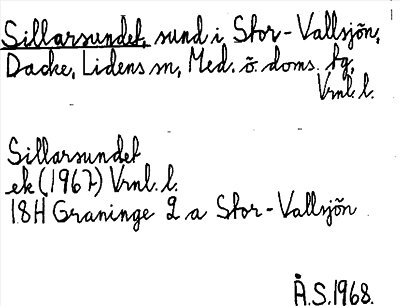 Sillarsundet, sund i Stor-Vallsjön,
Dacke, Lidens sn, Med. ö. doms. tg,
Vrnl. l.
Sillarsundet
ek (1967) Vrnl. l.
18H Graninge 2 a Stor-Vallsjön
Å.S. 1968.